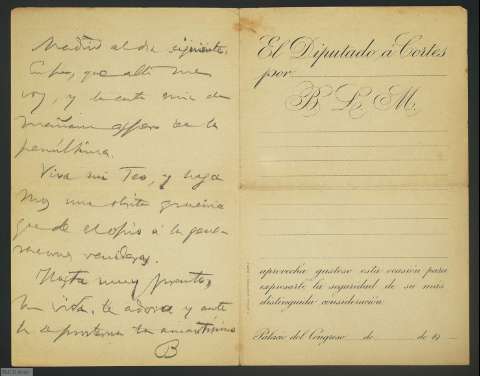 Madrid al dia siguiente.
que alta me
voy, y la carta mia de
mañana espero sea la
penúltima.
Viva mi Teo, y haga
mos una obrita graciosa
que dé el opio á las gene
raciones venideras.
Hasta muy pronto,
tu vida, te adora y ante
ti se prosterna tu amantísimo
B
El Diputado á Cortes
por
B. L. M.
aprovecha gustoso esta ocasión para
expresarle la seguridad de su más
distinguida consideración.
Palacio del Congreso de de 19